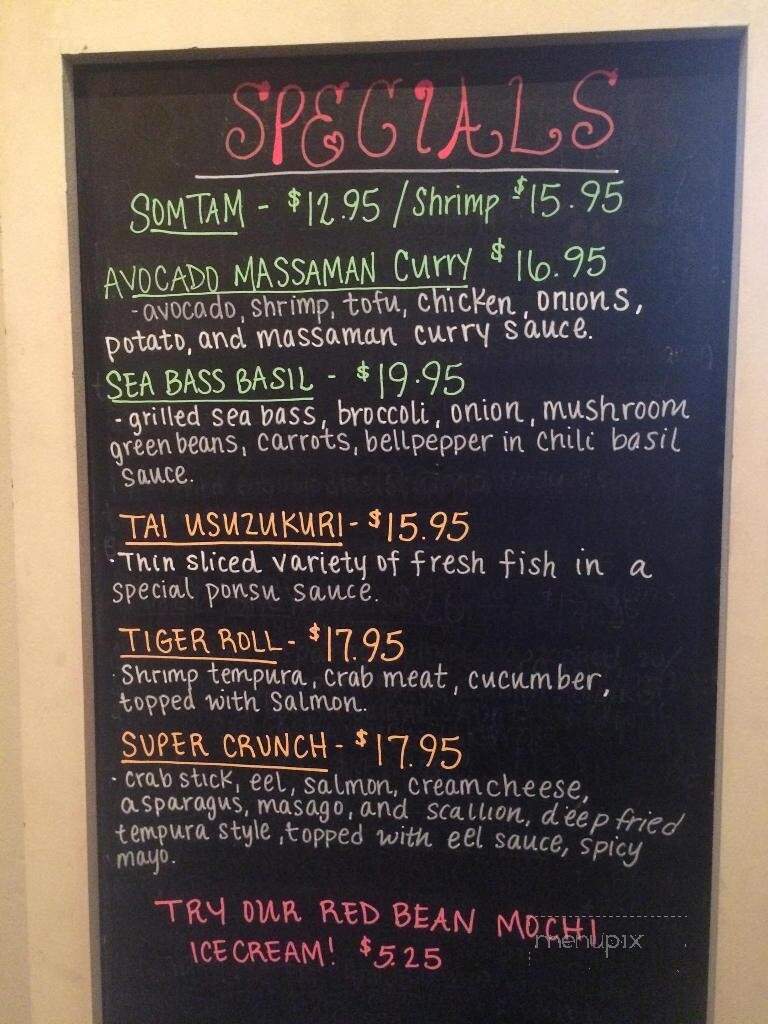 SPECIALS
SOMTAM - $12.95 / Shrimp $15.95
AVOCADO MASSAMAN Curry $16.95
- avocado, shrimp, tofu, chicken, onions,
potato, and massaman curry sauce.
SEA BASS BASIL - $19.95
- grilled sea bass, broccoli, onion, mushroom
green beans, carrots, bellpepper in chili basil
sauce.
TAI USUZUKURI - $15.95
· Thin sliced variety of fresh fish in a
special ponsu sauce.
TIGER ROLL - $17.95
· Shrimp tempura, crab meat, cucumber,
topped with Salmon.
SUPER CRUNCH - $17.95
· crab stick, eel, salmon, creamcheese,
asparagus, masago, and scallion, deep fried
tempura style, topped with eel sauce, spicy
mayo.
TRY OUR RED BEAN MOCHI
ICE CREAM! $5.25
menupix